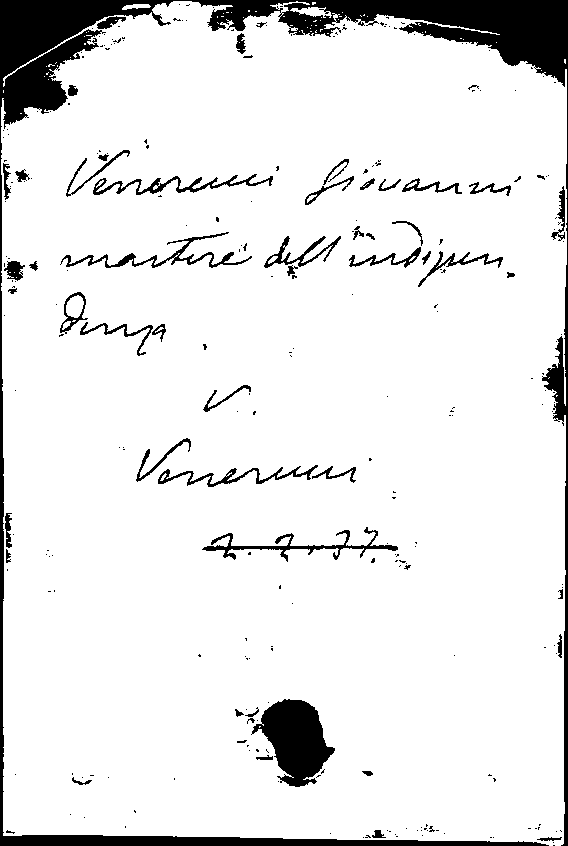 Venerucci Giovanni
martire dell'indipen-
denza
V.
Venerucci
2. 2. 37.